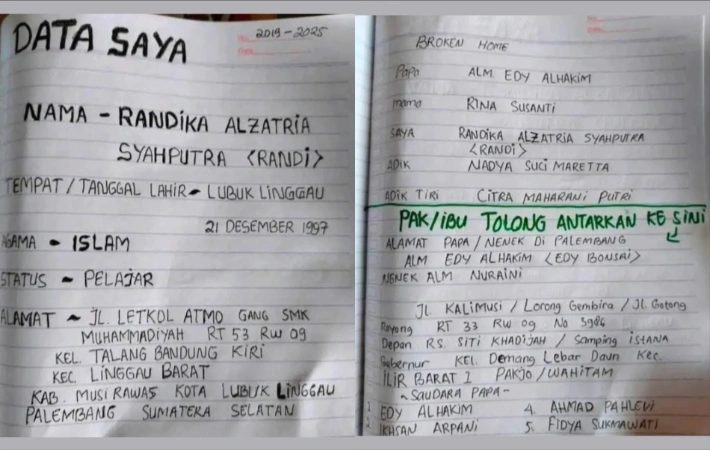 DATA SAYA
2019-2025
NAMA - RANDIKA ALZATRIA
SYAHPUTRA <RANDI>
TEMPAT/TANGGAL LAHIR - LUBUK LINGGAU
21 DESEMBER 1997
AGAMA - ISLAM
STATUS - PELAJAR
ALAMAT ~ JL. LETKOL ATMO GANG SMK
MUHAMMADIYAH RT 53 RW 09
KEL. TALANG BANDUNG KIRI
KEC. LINGGAU BARAT
KAB. MUSI RAWAS KOTA LUBUK LINGGAU
PALEMBANG SUMATERA SELATAN
BROKEN HOME
Papa ALM. EDY ALHAKIM
mama RINA SUSANTI
SAYA RANDIKA ALZATRIA SYAHPUTRA
<RANDI>
ADIK NADYA SUCI MARETTA
ADIK TIRI CITRA MAHARANI PUTRI
PAK/IBU TOLONG ANTARKAN KE SINI
ALAMAT PAPA/NENEK Di PALEMBANG
ALM EDY ALHAKIM <EDY BONSAI>
NENEK ALM NURAINI
JL. KALIMUSI / Lorong Gembira / Jl. Gotong
Royong RT 33 RW 09 No 3984
Depan RS. SITI KHADIJAH / Samping ISTANA
Gubernur KEL. Demang Lebar Daun Kec.
ILIR BARAT 1 PAKJO/WAHITAM
~SAUDARA PAPA-
1 EDY ALHAKIM 4. AHMAD PAHLEVI
2 IKHSAN ARPANI 5. FIDYA SUKMAWATI